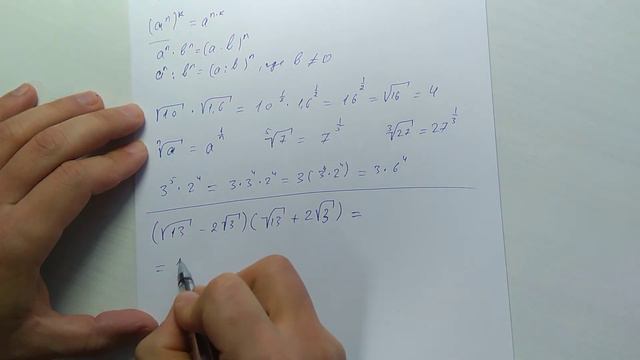 (aⁿ)ᵏ = aⁿ·ᵏ
aⁿ · bⁿ = (a · b)ⁿ
aⁿ : bⁿ = (a : b)ⁿ, где b ≠ 0
√10 · √1,6 = 10^(1/2) · 1,6^(1/2) = 16^(1/2) = √16 = 4
ⁿ√a = a^(1/n) ⁵√7 = 7^(1/5) ³√27 = 27^(1/3)
3⁵ · 2⁴ = 3 · 3⁴ · 2⁴ = 3(3⁴ · 2⁴) = 3 · 6⁴
(√13 − 2√3)(√13 + 2√3) =
=